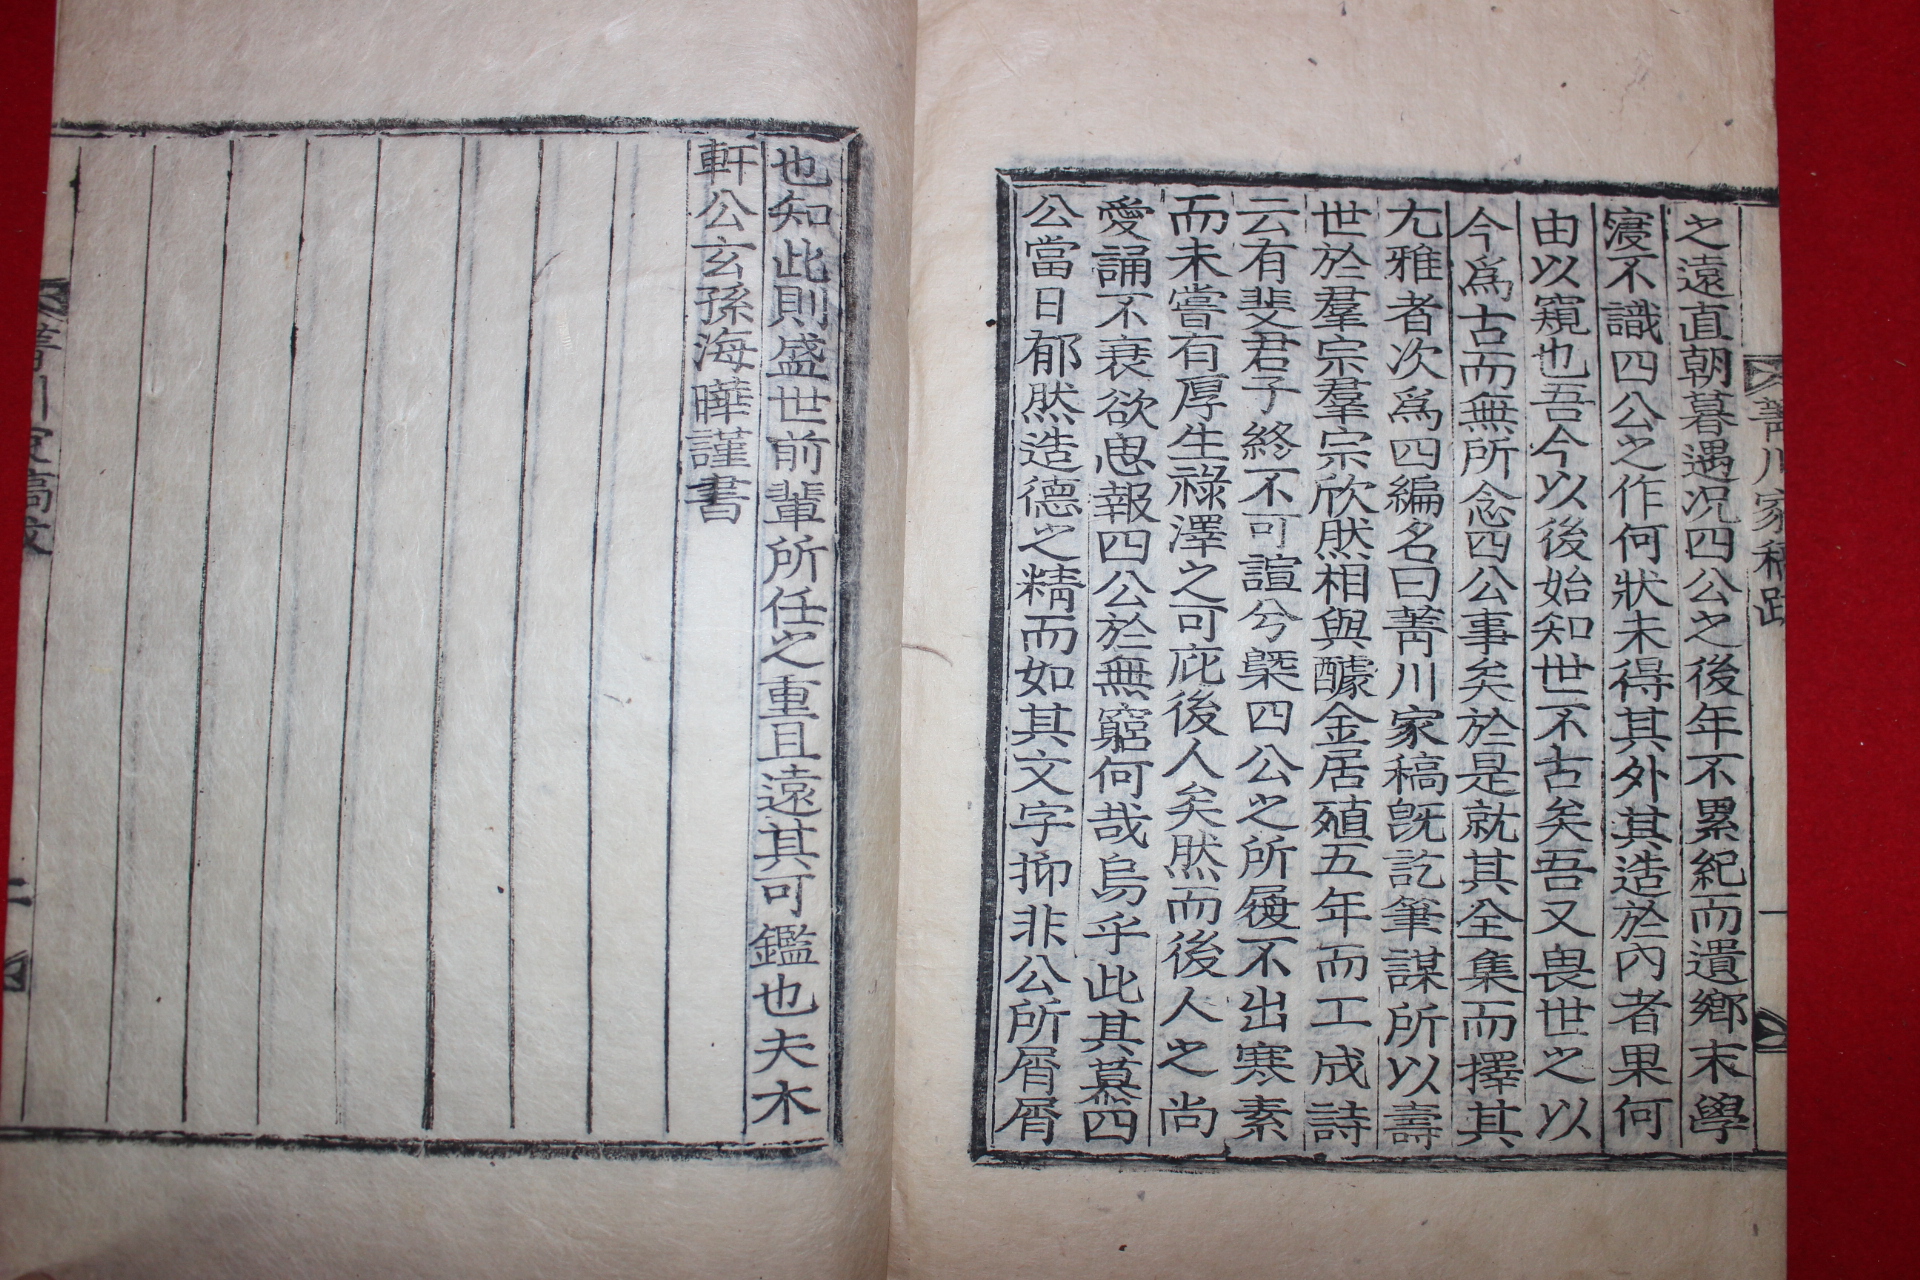 菁川家稿跋
一
之遠直朝暮遇况四公之後年不累紀而遺鄉末學
寖不識四公之作何狀未得其外其造於內者果何
由以窺也吾今以後始知世不古矣吾又畏世之以
今爲古而無所念四公事矣於是就其全集而擇其
尤雅者次爲四編名曰菁川家稿旣訖筆謀所以壽
世於羣宗羣宗欣然相與醵金居殖五年而工成詩
云有斐君子終不可諠兮槩四公之所履不出寒素
而未嘗有厚生祿澤之可庇後人矣然而後人之尚
愛誦不衰欲思報四公於無窮何哉烏乎此其慕四
公當日郁然造德之精而如其文字抑非公所屑屑
也知此則盛世前輩所任之重且遠其可鑑也夫木
軒公玄孫海曄謹書
菁川家稿跋
二